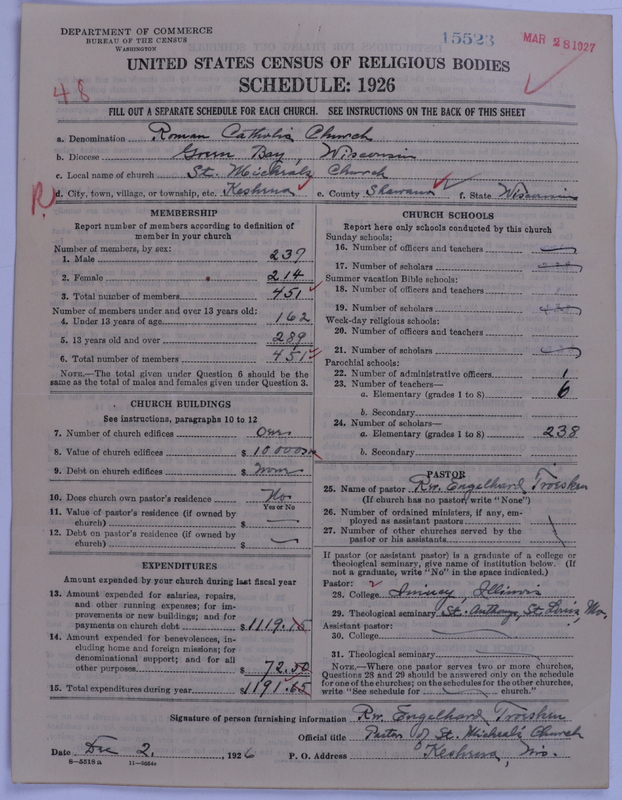 DEPARTMENT OF COMMERCE
BUREAU OF THE CENSUS
WASHINGTON
15523
MAR 28 1927
UNITED STATES CENSUS OF RELIGIOUS BODIES
SCHEDULE: 1926
48
FILL OUT A SEPARATE SCHEDULE FOR EACH CHURCH. SEE INSTRUCTIONS ON THE BACK OF THIS SHEET
a. Denomination Roman Catholic Church
b. Diocese Green Bay, Wisconsin
c. Local name of church St. Micheals Church
d. City, town, village, or township, etc. Keshena e. County Shawano f. State Wisconsin
R
MEMBERSHIP
Report number of members according to definition of member in your church
Number of members, by sex:
1. Male 237
2. Female 214
3. Total number of members 451
Number of members under and over 13 years old:
4. Under 13 years of age 162
5. 13 years old and over 289
6. Total number of members 451
NOTE.—The total given under Question 6 should be the same as the total of males and females given under Question 3.
CHURCH BUILDINGS
See instructions, paragraphs 10 to 12
7. Number of church edifices One
8. Value of church edifices $ 10,000
9. Debt on church edifices $ None
10. Does church own pastor's residence No
Yes or No
11. Value of pastor's residence (if owned by church) $
12. Debt on pastor's residence (if owned by church) $
EXPENDITURES
Amount expended by your church during last fiscal year
13. Amount expended for salaries, repairs, and other running expenses; for improvements or new buildings; and for payments on church debt $ 1119.
14. Amount expended for benevolences, including home and foreign missions; for denominational support; and for all other purposes $ 72.50
15. Total expenditures during year $ 1191.65
CHURCH SCHOOLS
Report here only schools conducted by this church
Sunday schools:
16. Number of officers and teachers
17. Number of scholars
Summer vacation Bible schools:
18. Number of officers and teachers
19. Number of scholars
Week-day religious schools:
20. Number of officers and teachers
21. Number of scholars
Parochial schools:
22. Number of administrative officers 1
23. Number of teachers—
a. Elementary (grades 1 to 8) 6
b. Secondary
24. Number of scholars—
a. Elementary (grades 1 to 8) 238
b. Secondary
PASTOR
25. Name of pastor Rev. Engelhard Troesken
(If church has no pastor, write "None")
26. Number of ordained ministers, if any, employed as assistant pastors
27. Number of other churches served by the pastor or his assistants
If pastor (or assistant pastor) is a graduate of a college or theological seminary, give name of institution below. (If not a graduate, write "No" in the space indicated.)
Pastor: 2
28. College Quincy, Illinois
29. Theological seminary St. Anthony, St. Louis, Mo.
Assistant pastor:
30. College
31. Theological seminary
NOTE.—Where one pastor serves two or more churches, Questions 28 and 29 should be answered only on the schedule for one of the churches; on the schedules for the other churches, write "See schedule for church."
Signature of person furnishing information Rev. Engelhard Troesken
Official title Pastor of St. Micheal's Church
Date Dec 2, 1926 P. O. Address Keshena, Wis.
8—5518a